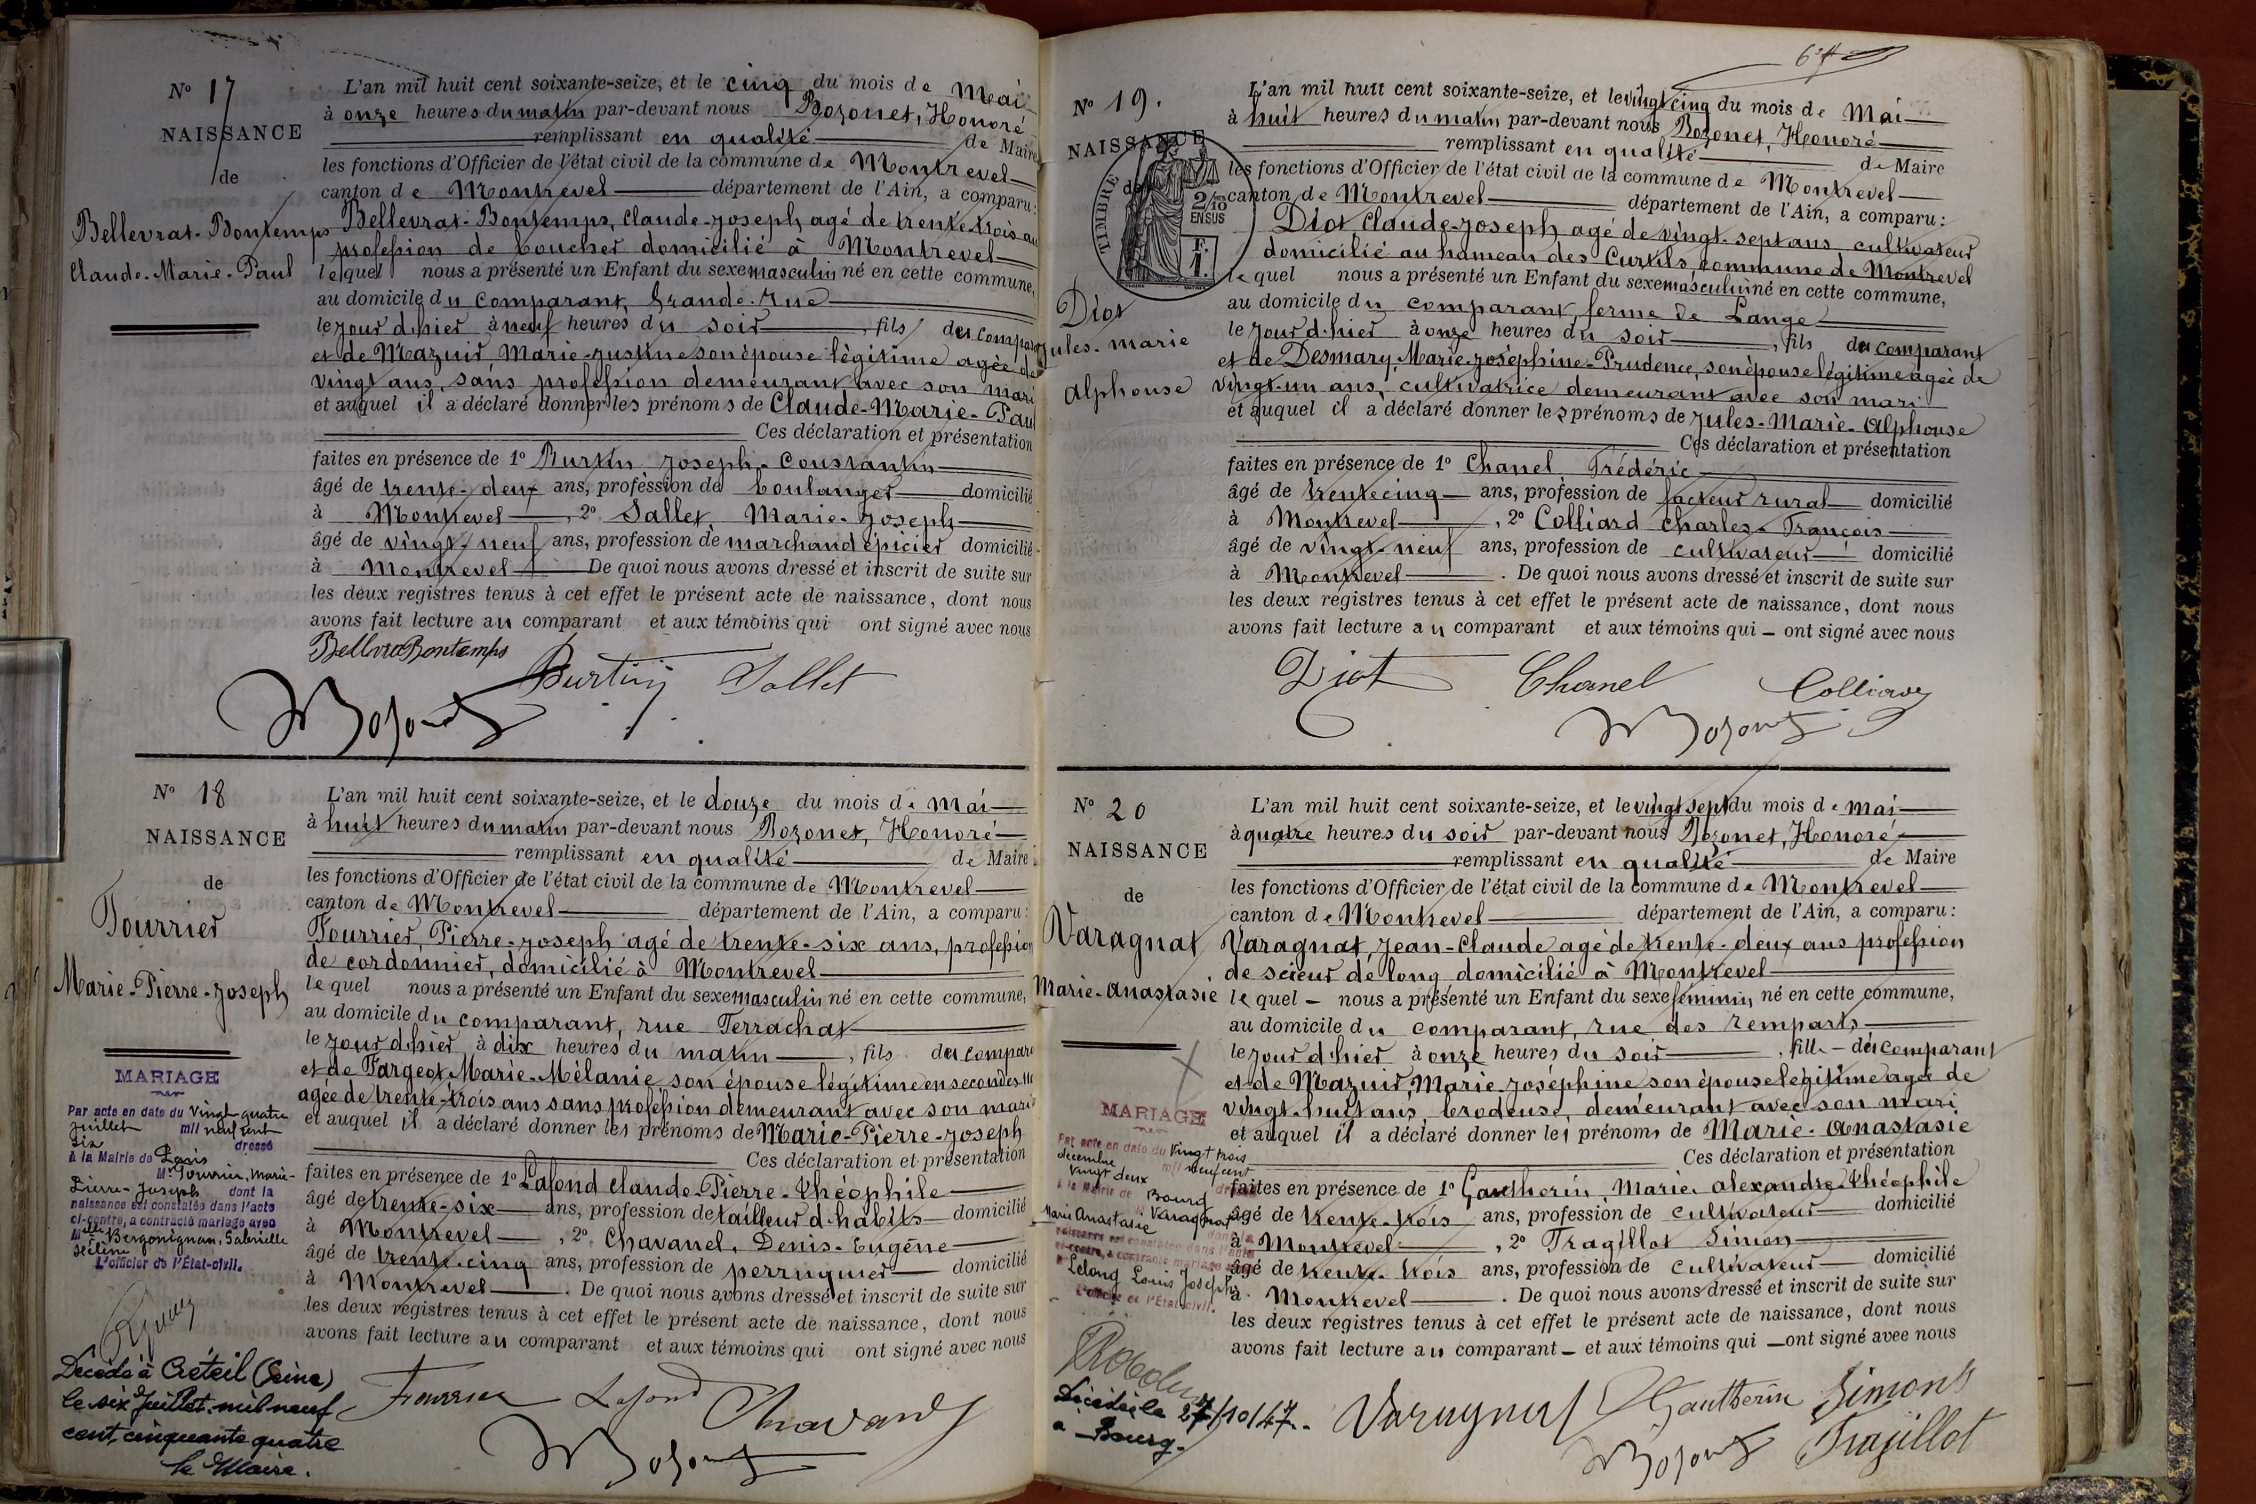 No 17
NAISSANCE
de
Bellevrat-Bontemps
Claude-Marie-Paul
L'an mil huit cent soixante-seize, et le cinq du mois de Mai
à onze heures du matin par-devant nous Bozonet, Honoré
remplissant en qualité de Maire
les fonctions d'Officier de l'état civil de la commune de Montrevel
canton de Montrevel département de l'Ain, a comparu:
Bellevrat-Bontemps, Claude-Joseph agé de trente-trois an
profession de boucher domicilié à Montrevel
lequel nous a présenté un Enfant du sexe masculin né en cette commune,
au domicile du comparant, Grande-Rue
le jour d'hier à neuf heures du soir, fils du compar
et de Mazuir Marie-Justine son épouse légitime agée de
vingt ans, sans profession demeurant avec son mari
et auquel il a déclaré donner les prénoms de Claude-Marie-Paul
Ces déclaration et présentation
faites en présence de 1o Burtin Joseph-Constantin
âgé de trente-deux ans, profession de boulanger domicilié
à Montrevel, 2o Sallet, Marie-Joseph
âgé de vingt-neuf ans, profession de marchand épicier domicilié
à Montrevel De quoi nous avons dressé et inscrit de suite sur
les deux registres tenus à cet effet le présent acte de naissance, dont nous
avons fait lecture au comparant et aux témoins qui ont signé avec nous
Burtin Sallet
Bozonet
No 18
NAISSANCE
de
Fourrier
Marie-Pierre-Joseph
MARIAGE
Par acte en date du Vingt quatre
Juillet mil neuf cent
six dressé
à la Mairie de Paris
Mr Fourrier, Marie-
Pierre-Joseph dont la
naissance est constatée dans l'acte
ci-contre, a contracté mariage avec
Mlle Bergonignan, Gabrielle
Hélène
L'officier de l'État-civil.
Décédé à Créteil (Seine)
le six Juillet mil neuf
cent cinquante quatre
le Maire.
L'an mil huit cent soixante-seize, et le douze du mois de mai
à huit heures du matin par-devant nous Bozonet, Honoré
remplissant en qualité de Maire
les fonctions d'Officier de l'état civil de la commune de Montrevel
canton de Montrevel département de l'Ain, a comparu:
Fourrier, Pierre-Joseph agé de trente-six ans, profession
de cordonnier, domicilié à Montrevel
lequel nous a présenté un Enfant du sexe masculin né en cette commune,
au domicile du comparant, rue Terrachat
le jour d'hier à dix heures du matin, fils du compara
et de Fargeot Marie-Mélanie son épouse légitime en secondes
agée de trente-trois ans sans profession demeurant avec son mari
et auquel il a déclaré donner les prénoms de Marie-Pierre-Joseph
Ces déclaration et présentation
faites en présence de 1o Lafond Claude-Pierre-Théophile
âgé de trente-six ans, profession de tailleur d'habits domicilié
à Montrevel, 2o Chavanel, Denis-Eugène
âgé de trente-cinq ans, profession de perruquier domicilié
à Montrevel. De quoi nous avons dressé et inscrit de suite sur
les deux registres tenus à cet effet le présent acte de naissance, dont nous
avons fait lecture au comparant et aux témoins qui ont signé avec nous
Fourrier Lafond Chavanel
Bozonet
No 19.
NAISSANCE
de
TIMBRE
2/10
EN SUS
F.
1.
Diot
Jules-marie
Alphonse
L'an mil huit cent soixante-seize, et le vingt cinq du mois de Mai
à huit heures du matin par-devant nous Bozonet, Honoré
remplissant en qualité de Maire
les fonctions d'Officier de l'état civil de la commune de Montrevel
canton de Montrevel département de l'Ain, a comparu:
Diot, Claude-Joseph agé de vingt-sept ans, cultivateur
domicilié au hameau des Curtils, commune de Montrevel
lequel nous a présenté un Enfant du sexe masculin né en cette commune,
au domicile du comparant, ferme de Lange
le jour d'hier à onze heures du soir, fils du comparant
et de Desmary, Marie-Joséphine-Prudence, son épouse légitime agée de
vingt-un ans, cultivatrice demeurant avec son mari
et auquel il a déclaré donner les prénoms de Jules-Marie-Alphonse
Ces déclaration et présentation
faites en présence de 1o Chanel Frédéric
âgé de trente cinq ans, profession de facteur rural domicilié
à Montrevel, 2o Colliard Charles-François
âgé de vingt-neuf ans, profession de cultivateur domicilié
à Montrevel. De quoi nous avons dressé et inscrit de suite sur
les deux registres tenus à cet effet le présent acte de naissance, dont nous
avons fait lecture au comparant et aux témoins qui ont signé avec nous
Diot Chanel Colliard
Bozonet
No 20
NAISSANCE
de
Varagnat
Marie-Anastasie
MARIAGE
Par acte en date du Vingt trois
décembre mil neuf cent
vingt deux dressé
à la Mairie de Bourg
Varagnat
Marie Anastasie dont la
naissance est constatée dans l'acte
ci-contre, a contracté mariage avec
Lelong Louis Joseph.
L'officier de l'État-civil.
Décédée le 27/10/47.
à Bourg.
L'an mil huit cent soixante-seize, et le vingt sept du mois de mai
à quatre heures du soir par-devant nous Bozonet, Honoré
remplissant en qualité de Maire
les fonctions d'Officier de l'état civil de la commune de Montrevel
canton de Montrevel département de l'Ain, a comparu:
Varagnat, Jean-Claude agé de trente-deux ans profession
de scieur de long domicilié à Montrevel
lequel nous a présenté un Enfant du sexe féminin né en cette commune,
au domicile du comparant, rue des Remparts
le jour d'hier à onze heures du soir, fille du comparant
et de Mazuir, Marie-Joséphine son épouse légitime agée de
vingt-huit ans, brodeuse, demeurant avec son mari
et auquel il a déclaré donner les prénoms de Marie-Anastasie
Ces déclaration et présentation
faites en présence de 1o Gautherin, Marie-Alexandre-Théophile
âgé de trente-trois ans, profession de cultivateur domicilié
à Montrevel, 2o Fragillot Simon
âgé de trente-trois ans, profession de cultivateur domicilié
à Montrevel. De quoi nous avons dressé et inscrit de suite sur
les deux registres tenus à cet effet le présent acte de naissance, dont nous
avons fait lecture au comparant et aux témoins qui ont signé avec nous
Varagnat Gautherin Simon
Bozonet Fragillot